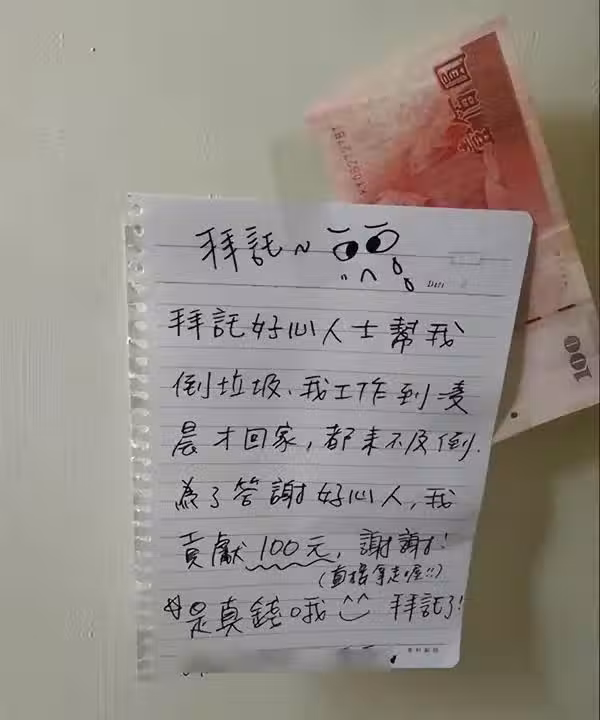 圓佰壹
KY05272781
100
拜託~
拜託好心人士幫我
倒垃圾、我工作到凌
晨才回家,都來不及倒.
為了答謝好心人,我
貢獻100元,謝謝!
(直接拿走喔!!)
是真錢哦 拜託了!